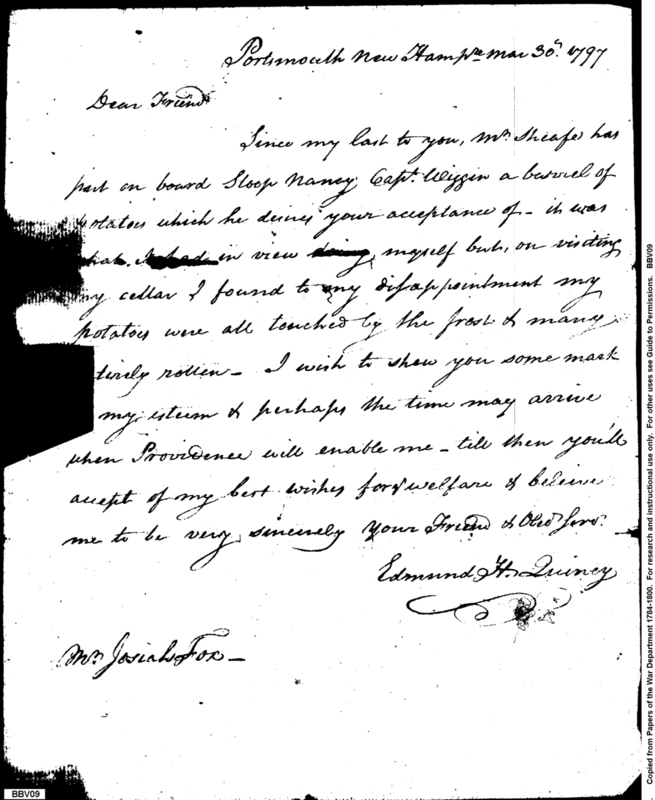 Portsmouth New Hamp.re Mar 30th. 1797
Dear Friend
Since my last to you, Mr. Sheafe has
put on board Sloop Nancy Capt. Wiggin a barrel of
potatoes which he desires your acceptance of - it was
what in view myself but, on visiting
my cellar I found to my disappointment my
potatoes were all touched by the frost & many
tirely rotten - I wish to show you some mark
my esteem & perhaps the time may arrive
when Providence will enable me - till then you'll
accept of my best wishes for yr welfare & believe
me to be very sincerely your Friend & Obed. Servt.
Edmund H. Quincy
Mr. Josiah Fox -
BBV09
Copied from Papers of the War Department 1784-1800. For research and instructional use only. For other uses see Guide to Permissions. BBV09